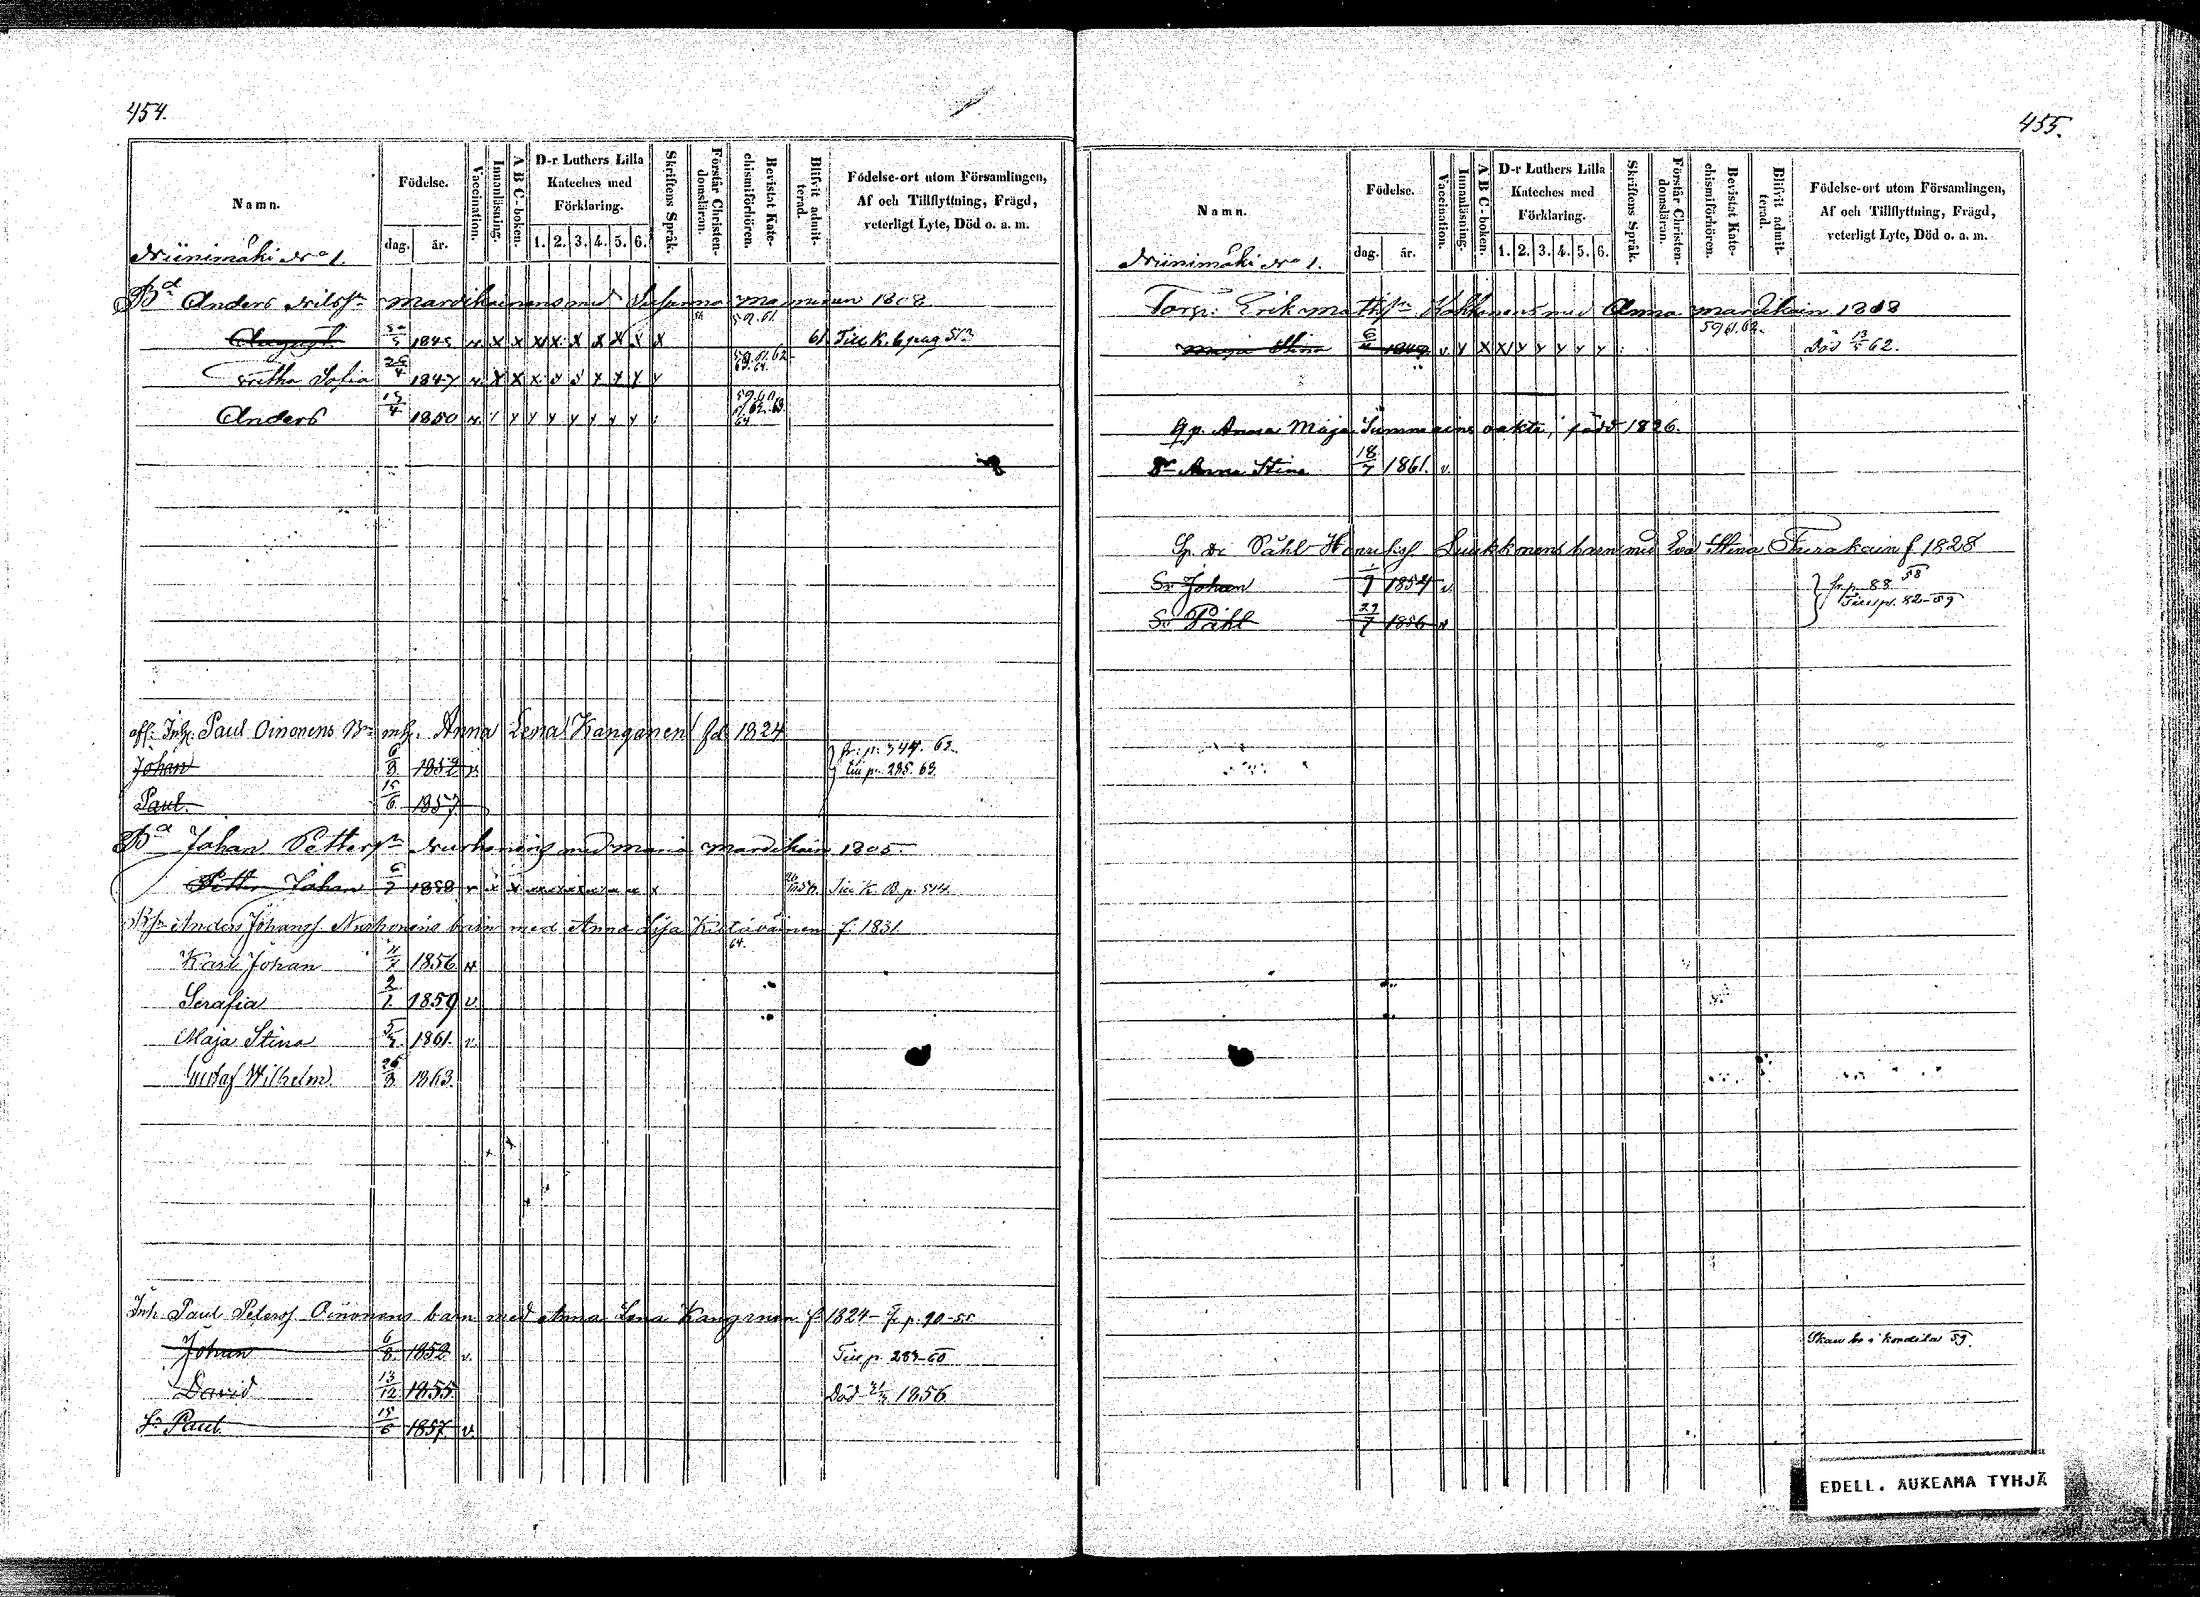 454.
Namn.
Födelse.
dag. år.
Vaccination.
Innanläsning.
A B C-boken.
D-r Luthers Lilla
Kateches med
Förklaring.
1. 2. 3. 4. 5. 6.
Skriftens Språk.
Förstår Christen-
domsläran.
Bevistat Kate-
chismiförhören.
Blifvit admit-
terad.
Födelse-ort utom Församlingen,
Af och Tillflyttning, Frägd,
veterligt Lyte, Död o. a. m.
Niinimäki No 1.
Bd Anders Nilsson Mardikainens med Susanna 1808
August 1845 v. x x x x x x x x x 61 Till K. b. pag 513
Sofia 26/4 1847 v. x x x
Anders 13/4 1850 v.
Inh. Paul Oinonens Bn m. h. Anna Lena Kanganen fd 1824
Johan 6/8 1852 v. fr: p: 344. 62.
till p. 285. 63.
Paul 15/6 1857
Bd Johan Petterson Nurhonens med Maria Mardikain 1805.
Petter Johan 6/7 1838 v x x Till K. B. p. 514.
Anders Johans. Nurhonens barn med Anna Lisa f. 1831.
64.
Karl Johan 11/7 1856 v
Serafia 2/1 1859 v.
Maja Stina 5/7 1861. v.
Gustaf Wilhelm 26/8 1863.
Inh. Paul Peters. Oinonens barn med Anna Lena Kanganen f. 1824 - fr p. 90-55
Johan 6/8 1852 v. Till p. 283-60
David 13/12 1855 Död 1856
Sn Paul 15/6 1857 v.
455.
Namn.
Födelse.
dag. år.
Vaccination.
Innanläsning.
A B C-boken.
D-r Luthers Lilla
Kateches med
Förklaring.
1. 2. 3. 4. 5. 6.
Skriftens Språk.
Förstår Christen-
domsläran.
Bevistat Kate-
chismiförhören.
Blifvit admit-
terad.
Födelse-ort utom Församlingen,
Af och Tillflyttning, Frägd,
veterligt Lyte, Död o. a. m.
Niinimäki No 1.
Torp: Erik Mathsson Kokkonens med Anna Mardikain 1808
Maja Stina 1849 v Död 13/5 62.
Qp. Anna Maja oäkta, född 1826.
Dr Anna Stina 18/7 1861. v.
Påhl Henrikss. Luukkonens barn med Eva Stina f 1828
Sn Johan 1/7 1854 v. fr. p. 88 58
Till p. 82-59
Sn Påhl 29/7 1856 v
Skall bo i 59.
EDELL. AUKEAMA TYHJÄ